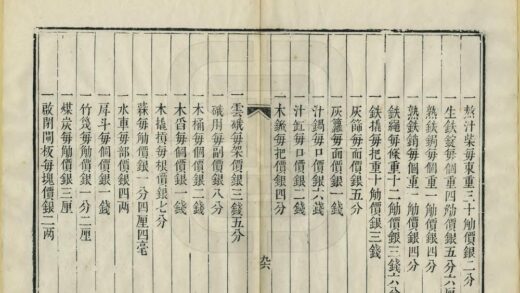 一熬汁柴每束重三十觔價銀二分
一生鉄鍁每個重四觔價銀五分六厘
一熟鉄鍋每個重一觔價銀四分
一熟鉄銷每個重一觔價銀四分
一鉄繩每條重十二觔價銀三錢六分
一鉄撬每把重十觔價銀三錢
一灰篩每面價銀五分
一灰籮每面價銀一錢
一汁鍋每口價銀六錢
一汁缸每口價銀四錢
一木鍁每把價銀四分
九六
一雲硪每架價銀三錢五分
一硪肘每副價銀八分
一木桶每個價銀二錢
一木舀每個價銀一錢
一木撬損每根價銀七分
一蔴每觔價銀一分四厘四毫
一水車每部價銀四兩
一戽斗每個價銀一錢
一竹幾每觔價銀一分二厘
一煤炭每觔價銀三厘
一啟閉閘板每塊價銀二兩